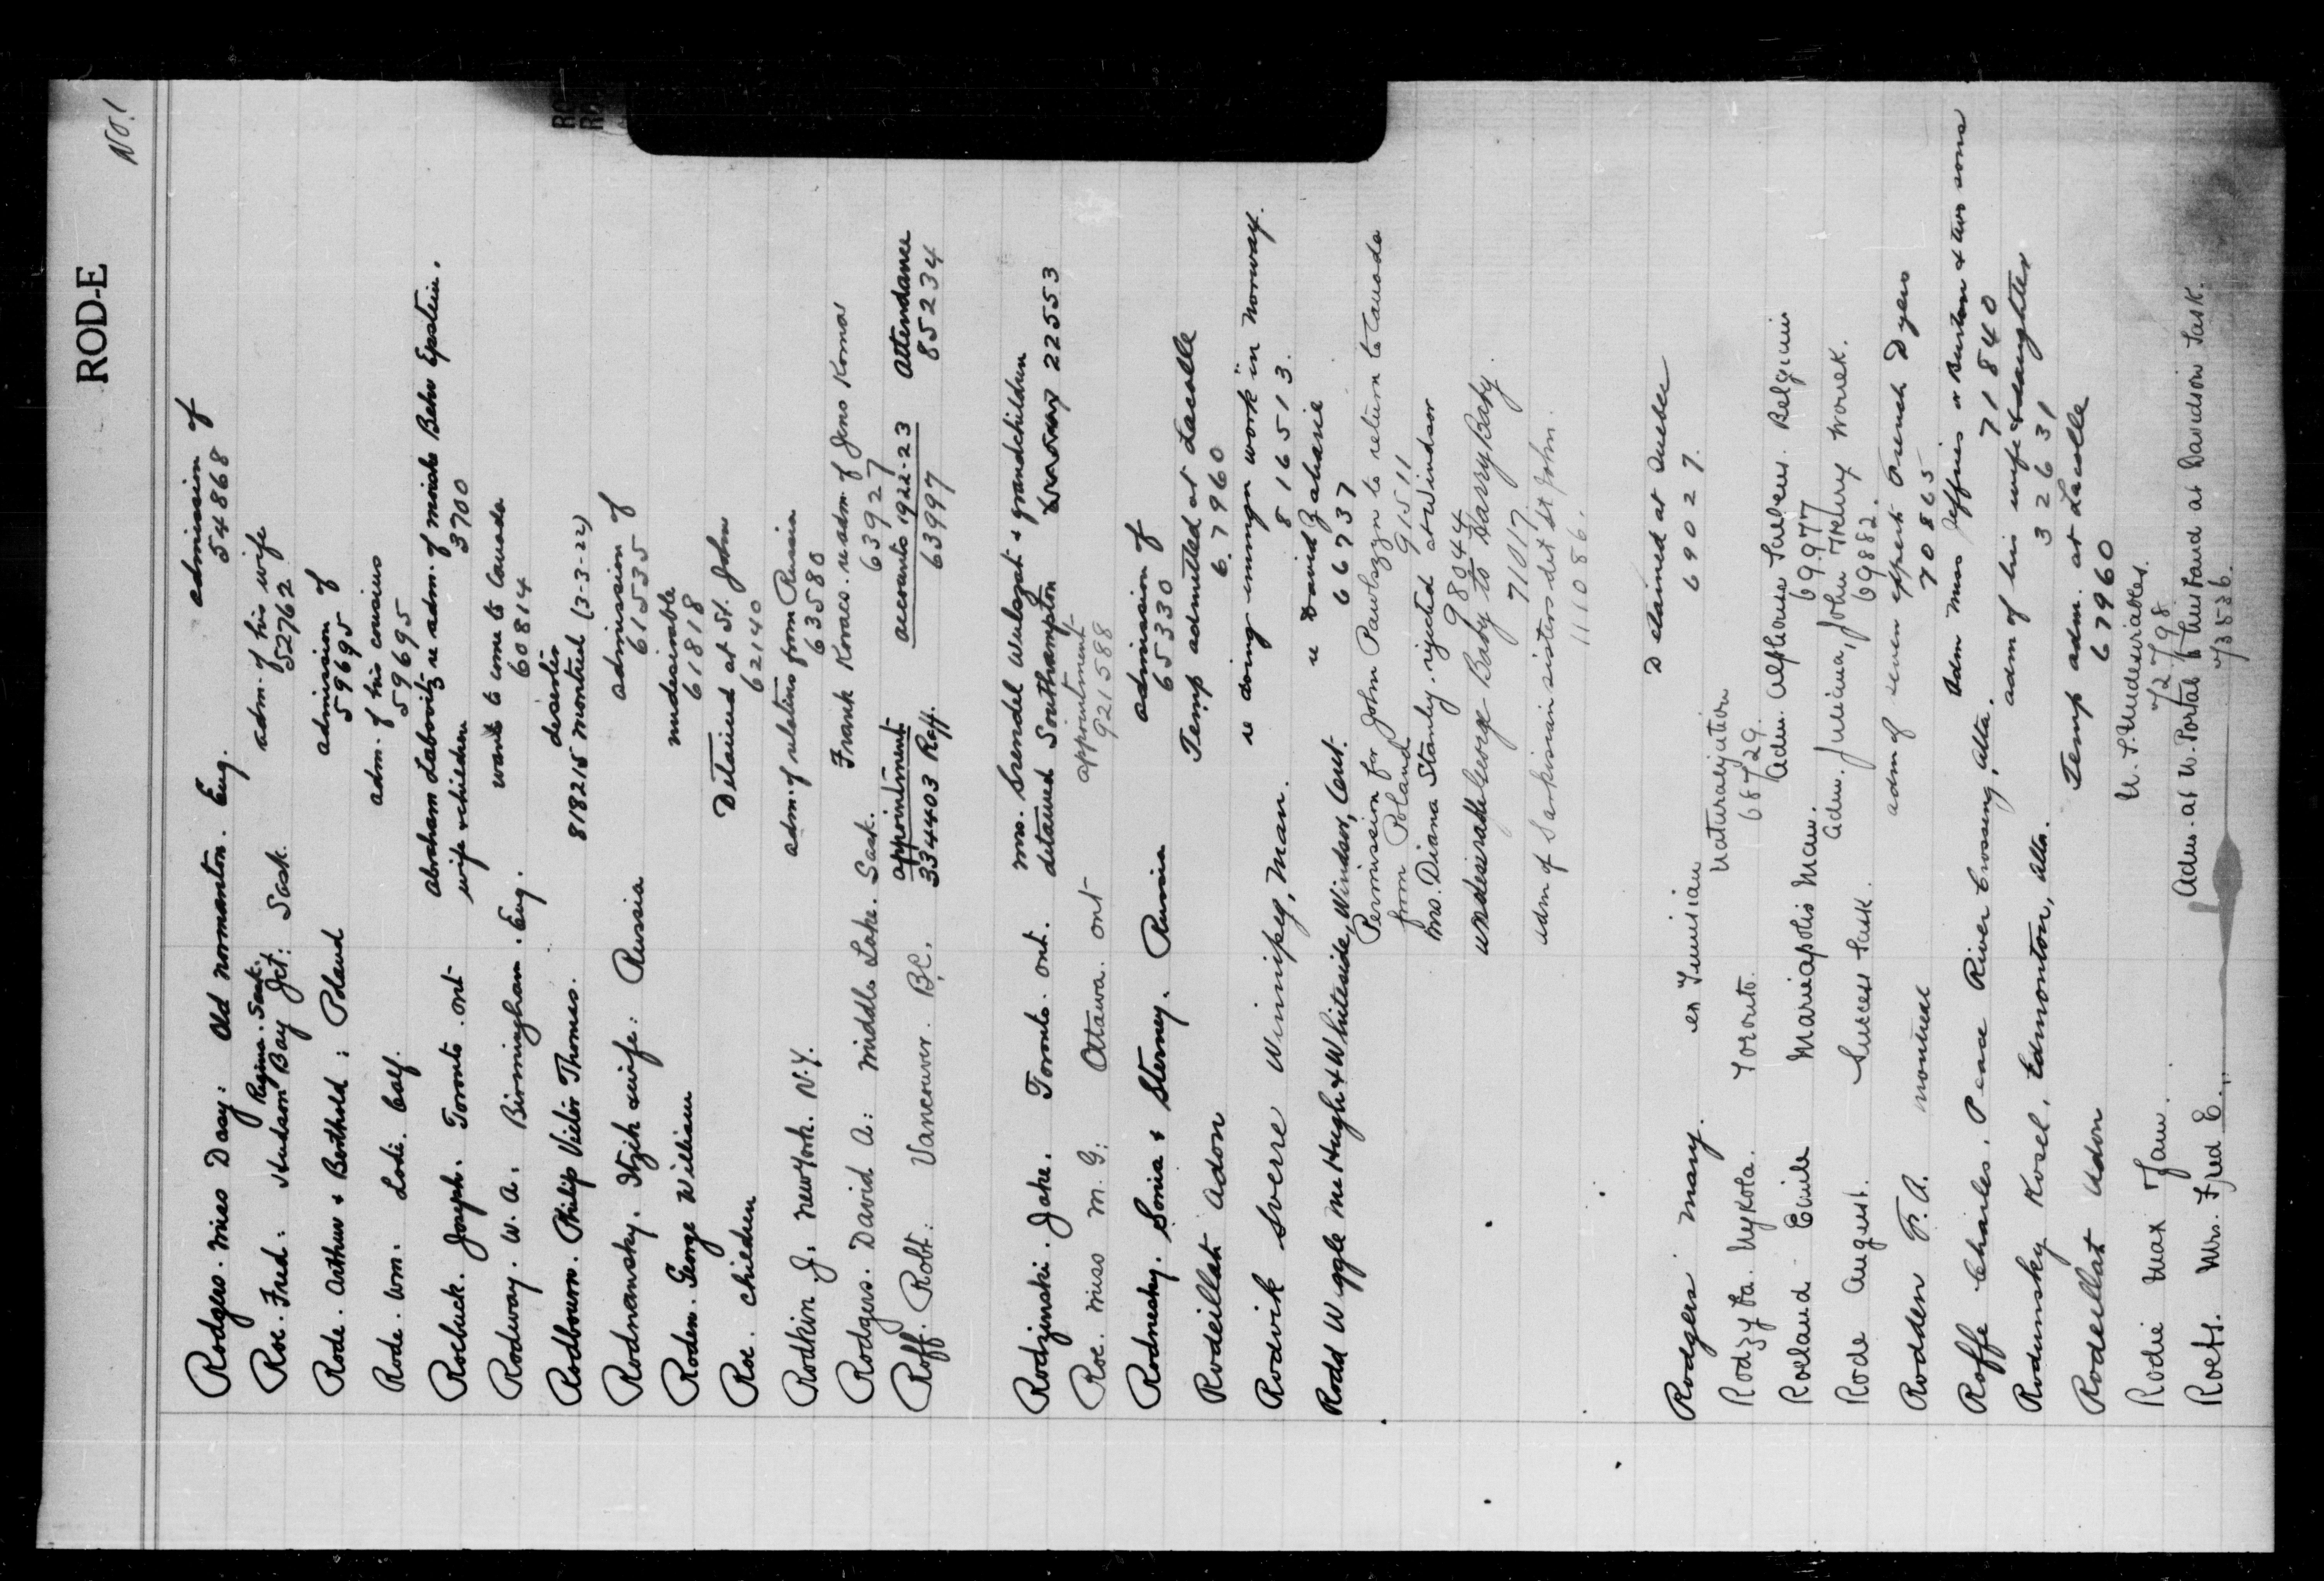 ROD-E
No. 1
Rodgers. Miss Daisy: Old Normanton. Eng. admission of 54868
Regina. Sask.
Roe. Fred: Hudson Bay Jct: Sask. adm. of his wife 52762
Rode. Arthur & Berthold: Poland admission of 59695
Rode. Wm. Lodi. Calf. adm. of his cousins 59695
Roebuck. Joseph. Toronto. Ont Abraham Labovitz re adm. of Behr Epstein.
wife & children 3700
Rodway. W. A. Birmingham. Eng. wants to come to Canada 60814
Rodbourn. Philip Victor Thomas. deserter
818215 Montreal (3-3-22)
Rodnansky. Itzik & wife: Russia admission of 61535
Roden. George William undesirable 61818
Roe. children Detained at St. John 62140
Rodkin. J. New York. N.Y. adm. of relatives from Russia 63580
Rodgers. David A: Middle Lake. Sask. Frank Kovacs. re adm. of Jeno Korma 63927
Roff. Robt: Vancouver. B.C. appointment 334403 Roff. accounts 1922-23 63997 Attendance 85234
Rodzinski. Jake. Toronto. Ont. Mrs. Srendel & grandchildren
detained Southampton 22553
Roe. Miss M. G: Ottawa. Ont appointment 921588
Rodnesky. Sonia & Sterney. Russia admission of 65330
Rodeillat Adon Temp admitted at Lacolle 67960
Rodvik Sverre Winnipeg, Man. re doing emmgn work in Norway. 816513.
Rodd Wiggle McHugh & Whiteside, Windsor, Ont. re David Zaharie 66737
Permission for John Pawlozzn to return to Canada
from Poland 91511
Mrs. Diana Stanley. rejected at Windsor 98044
undesirable George Baby to Harry Baby. 71017
adm of Sarkisian sisters det St John. 111086.
Rodgers Mary. ex Tunisian Detained at Quebec 69027.
Rodzyka. Mykola. Toronto. Naturalization 68729.
Roeland Emile Mariapolis Man. Adm. Alphonse Belgium 69977
Rode August. Success Sask. Adm. Juliana, John & Henry Worek. 69882.
Rodden F. A. Montreal adm of seven expert French Dyers 70865
Roffe Charles. Peace River Crossing, Alta. Adm Mrs Jeffries or Burton & two sons 71840
Rodumsky Kosel. Edmonton, Alta. adm of his wife & daughter 32631
Rodeillat Adon Temp adm. at Lacolle 679960
Rodie Max Fam. U.S. Undesirables. 72798
Roets. Mrs. Fred E. Adm. at N. Portal to husband at Davidson Sask. 73536.